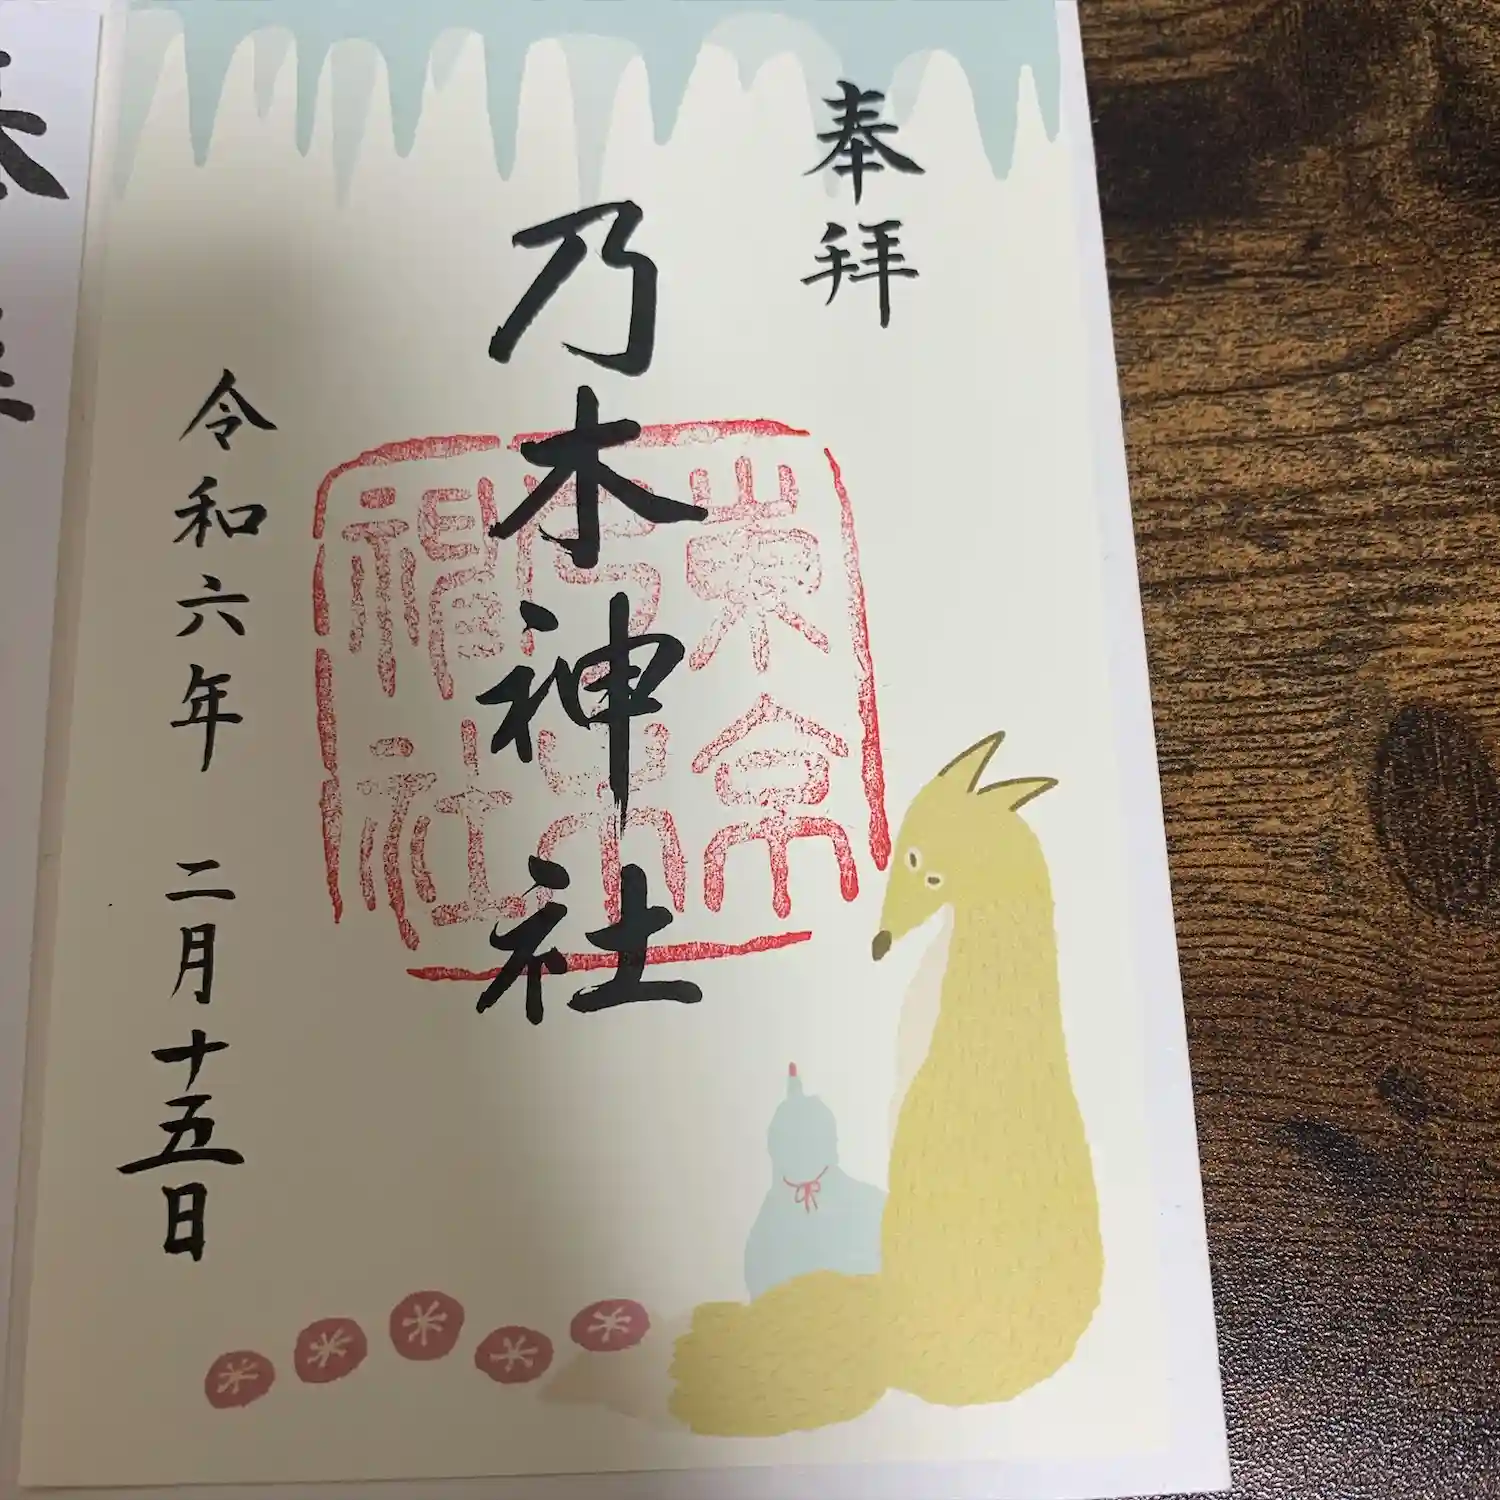 奉拝
乃木神社
東京乃木神社
令和六年 二月十五日